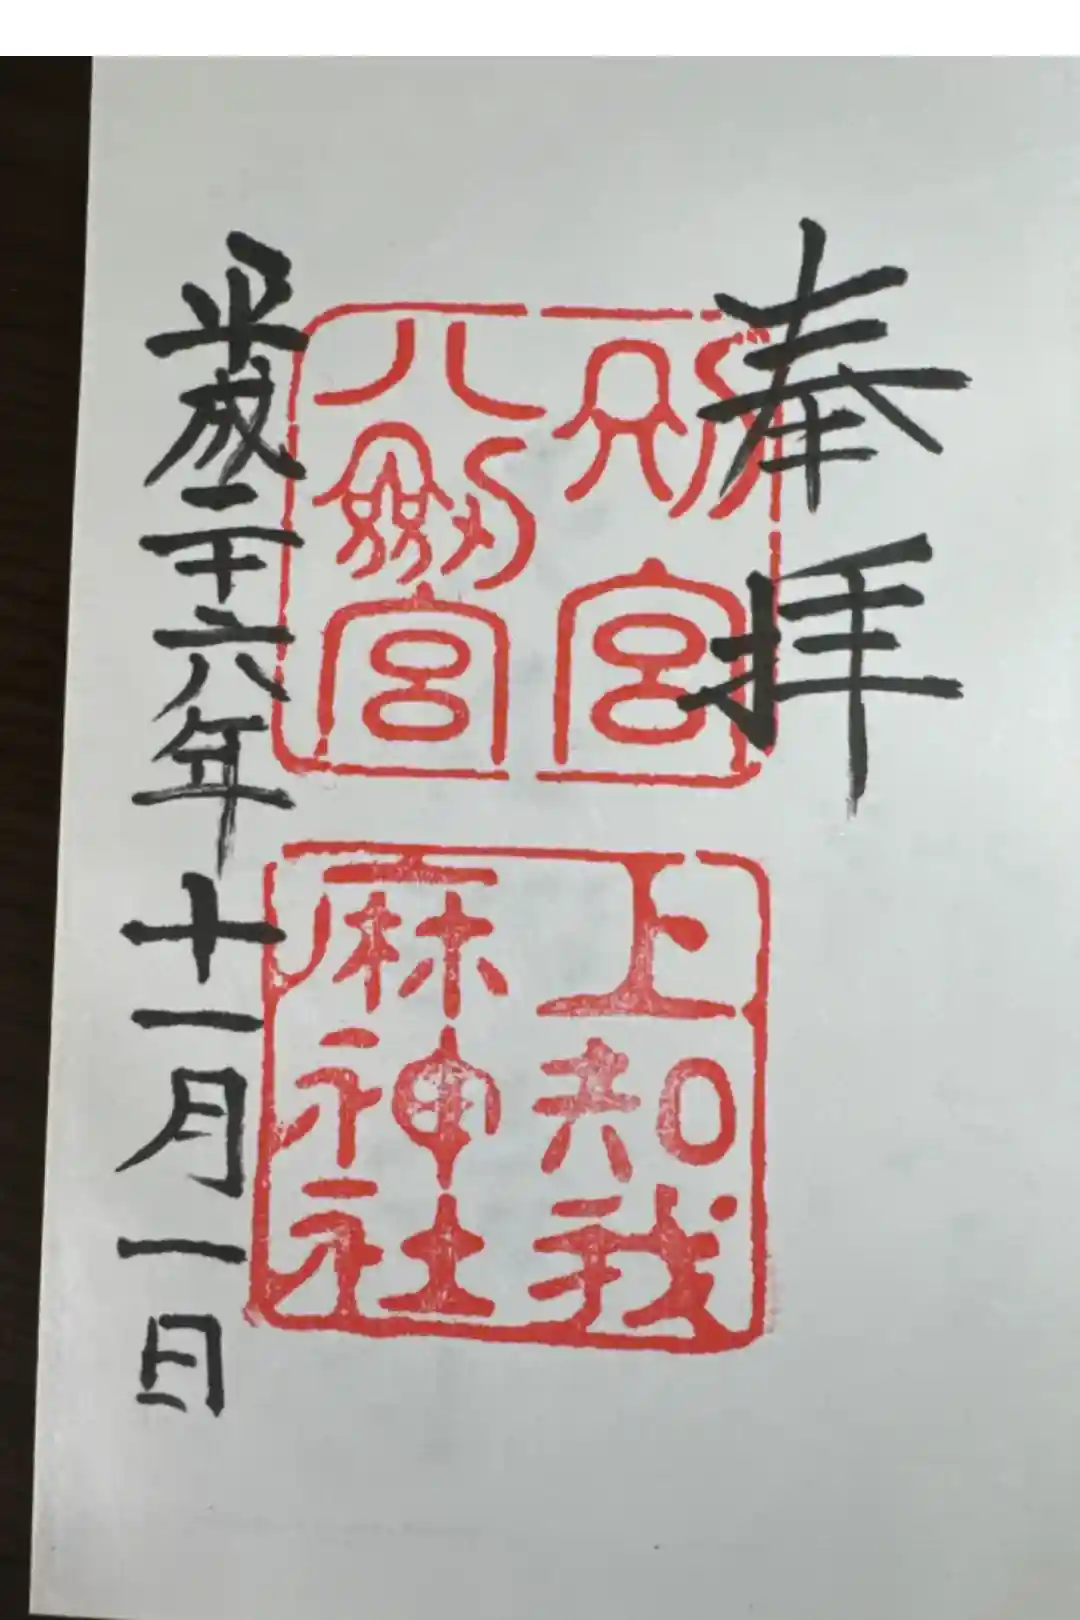 奉拝
別宮
八劔宮
上知我
麻神社
平成二十六年十一月一日